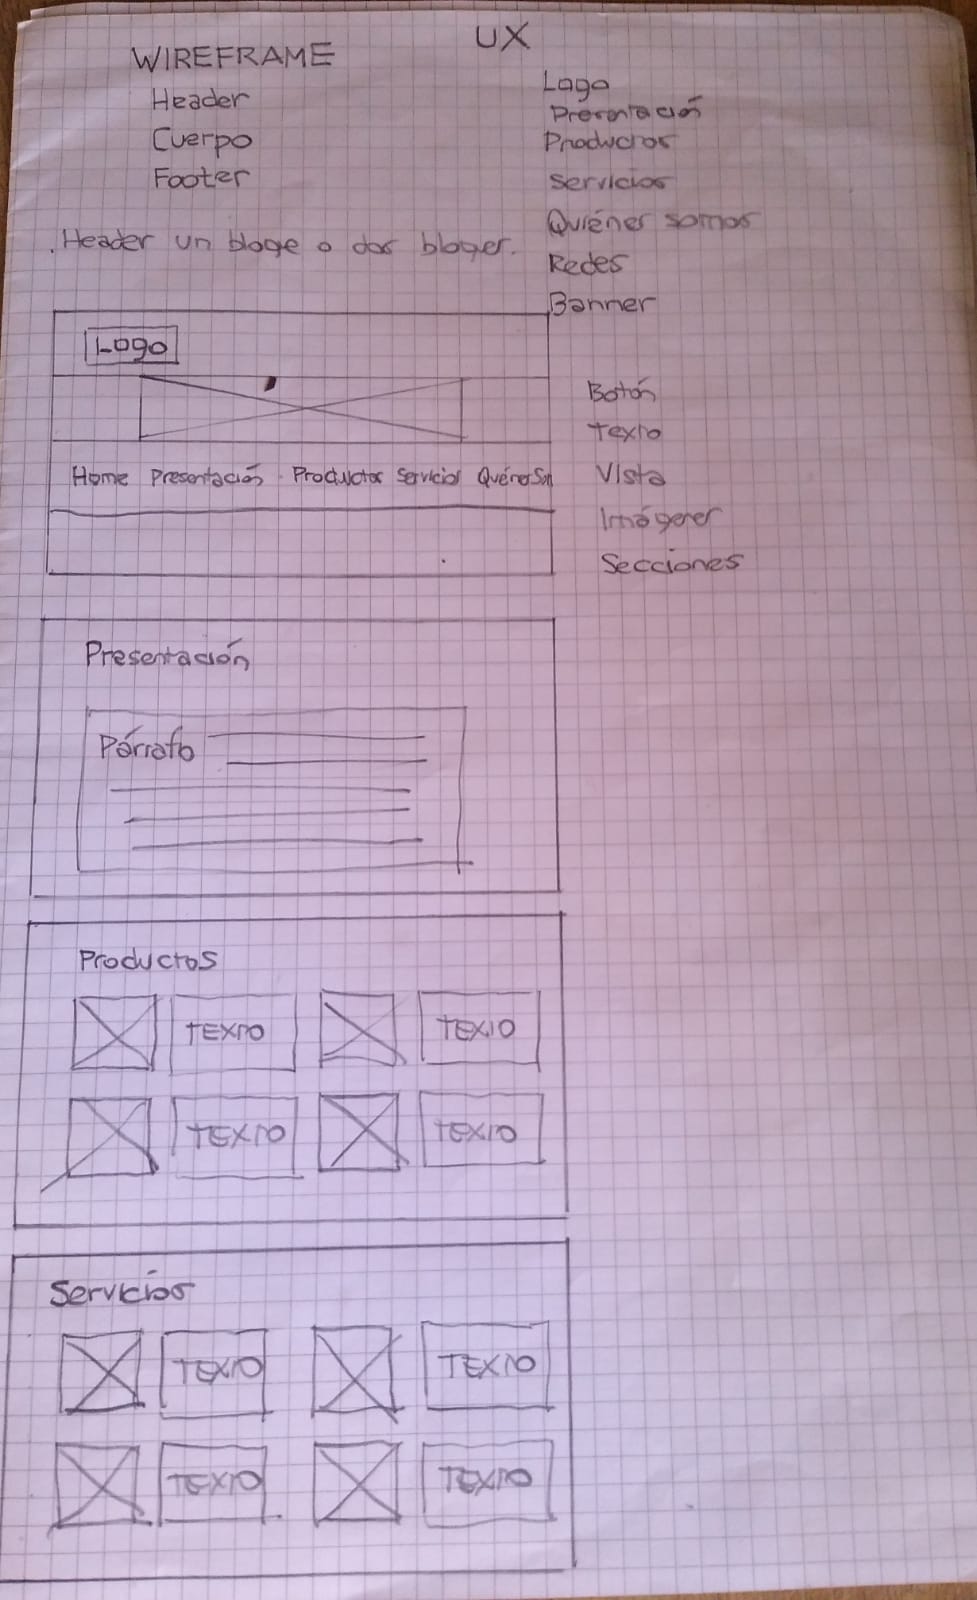 UX
WIREFRAME
Header
Cuerpo
Footer
Logo
Presentación
Productos
Servicios
Quiénes somos
Redes
Banner
. Header un bloqe o dos bloqes.
Logo
Home Presentación Productos Servicios QuiénesSom
Botón
Texto
Vista
Imágenes
Secciones
Presentación
Párrafo
Productos
TEXTO TEXTO
TEXTO TEXTO
Servicios
TEXTO TEXTO
TEXTO TEXTO